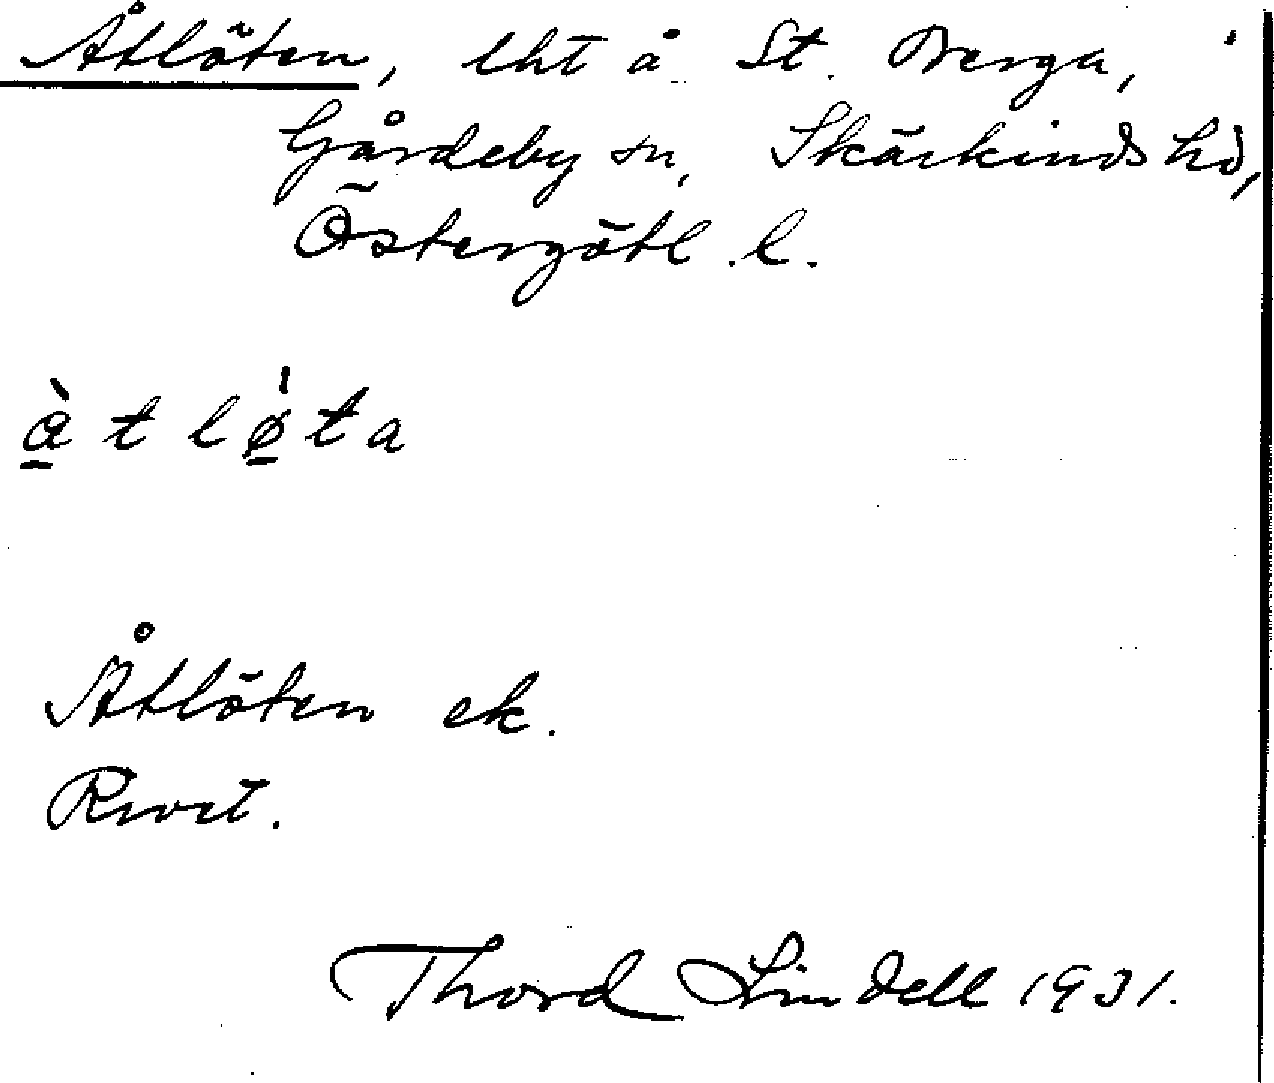 Åtlöten, lht å St. Berga,
Gårdeby sn, Skärkinds hd,
Östergötl. l.
à t l ǿ t a
Åtlöten ek.
Rwet.
Thord Lindell 1931.